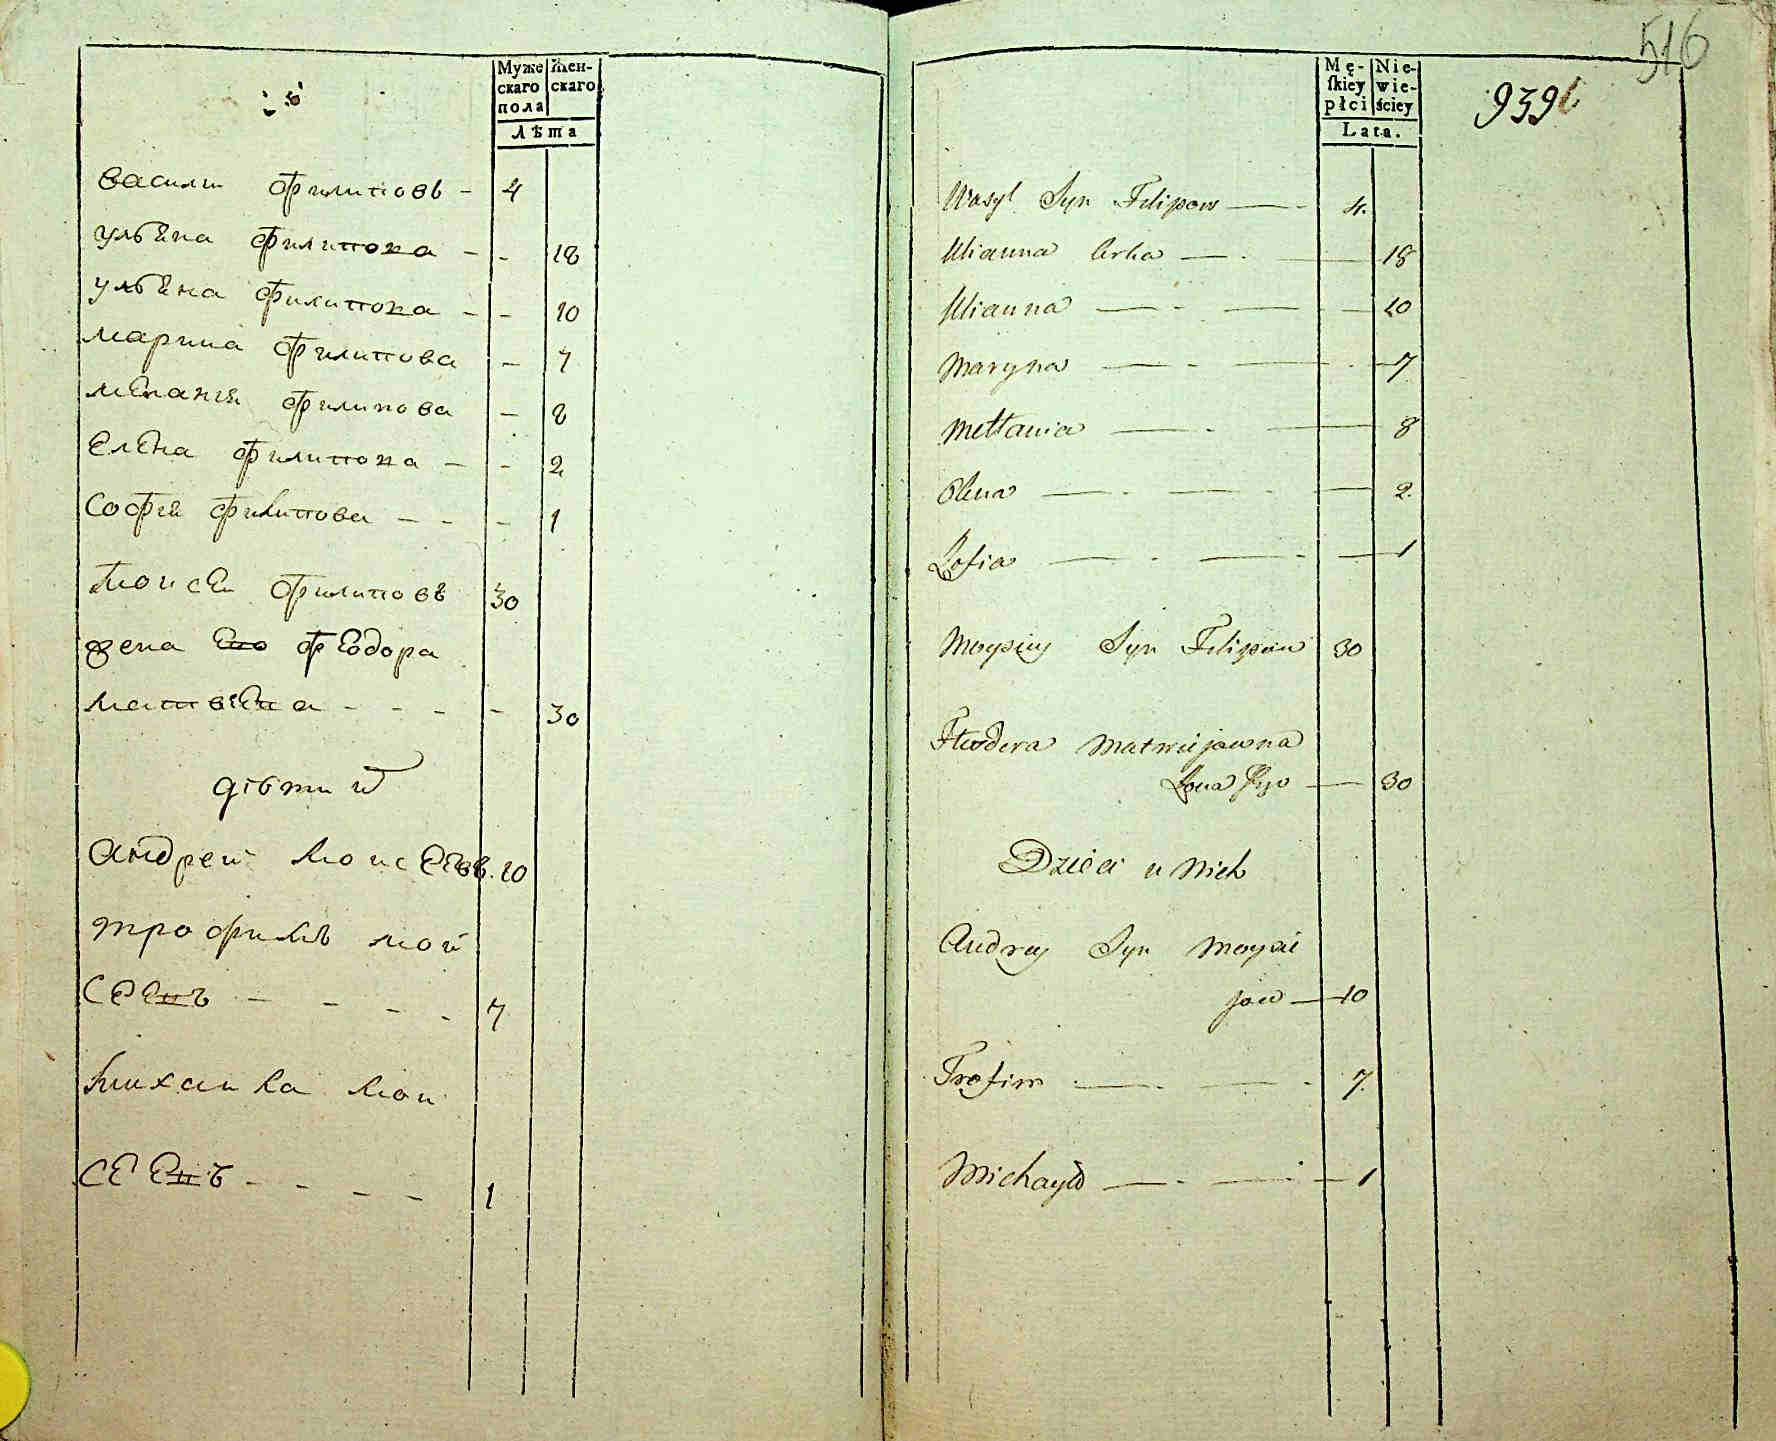 Муже
скаго
пола
Жен-
скаго
Лѣта
василии филиповъ - 4
ульѣна филипова - - 18
ульѣна филипова - - 10
марина филипова - 7
меланiя филипова - 8
Елена филипова - - 2
Софiя филипова - - - 1
Моисеи филиповъ 30
жена Его феодора
матвѣева - - - - 30
дѣти и
андреи Моисеевъ. 10
трофимъ мои
сеевъ - - - - 7
михаила мои
сеевъ - - - - 1
516
Mę-
ſkiey
płci
Nie-
wie-
ściey
Lata.
939
Wasyl Syn Filipow — - 4.
Ulianna Corka — - — 18
Ulianna — - — - — 10
Maryna — - — - — 7
Mełania — - — 8
Olena — - — - — 2.
Zofia — - — - — 1
Moysiey Syn Filipow 30
Fteodora Matwiejowna
Zona Jego — 30
Dzieci u Nich
Andrey Syn Moysie
jow — 10
Trofim — - — - 7.
Michayło — - — - — 1